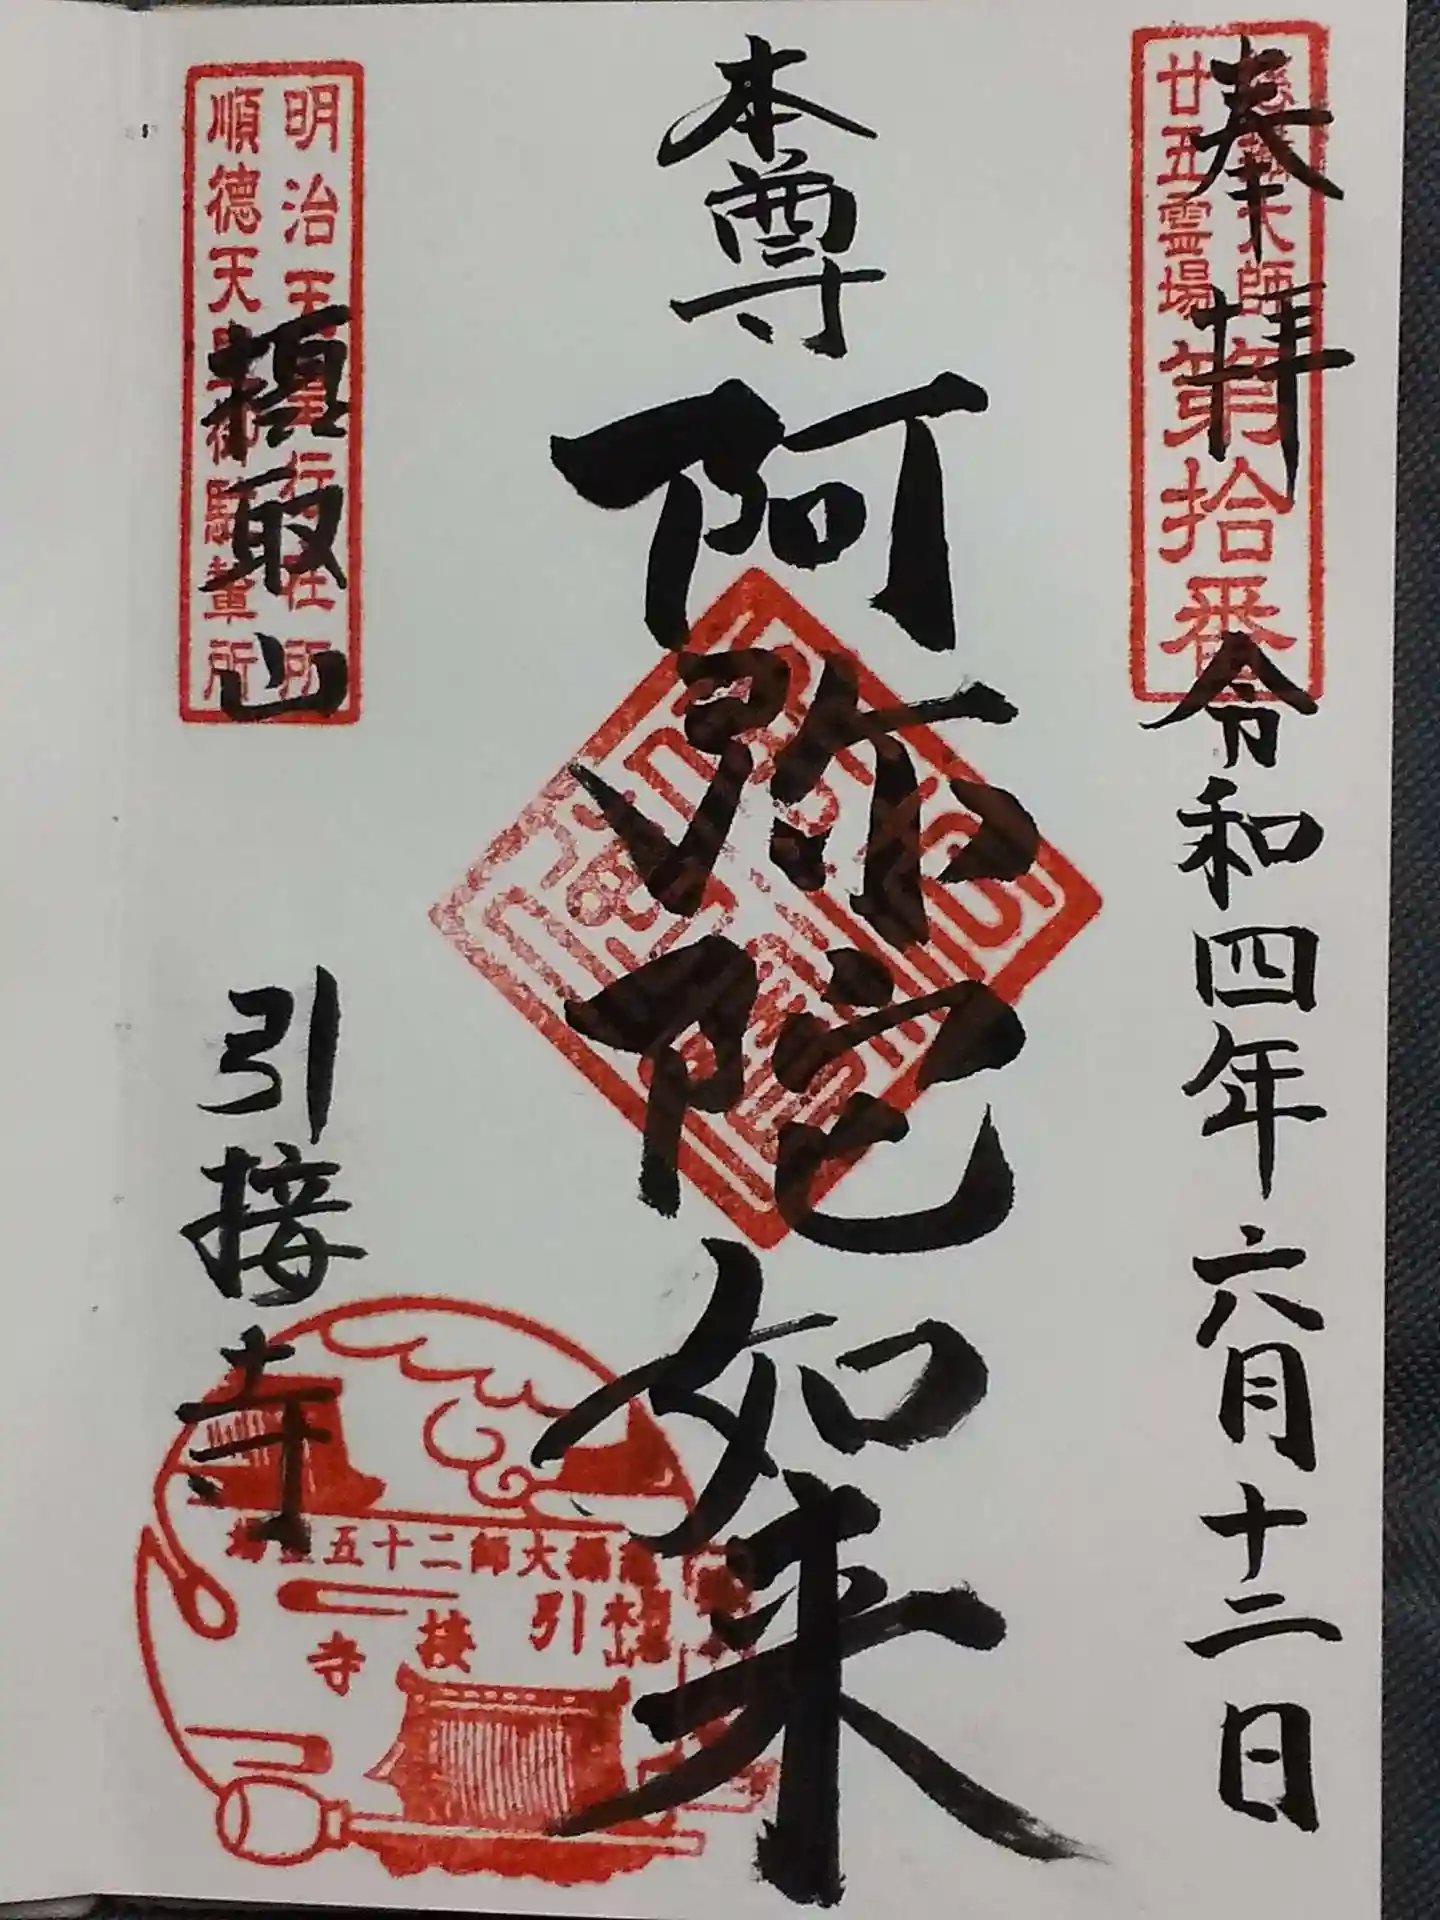 奉拝
令和四年六月十二日
大師
廿五霊場
第拾番
本尊
阿弥陀如来
明治天
行在所
順徳天
御駐輦所
摂取山
引接寺
大師二十五
引接寺